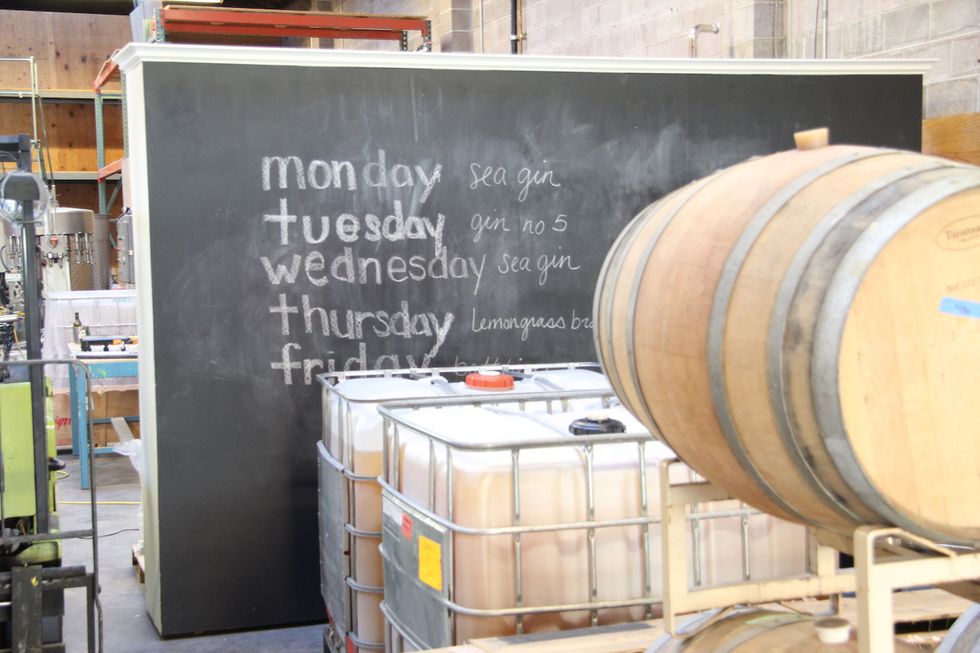 monday sea gin
tuesday gin no 5
wednesday sea gin
thursday lemongrass
friday